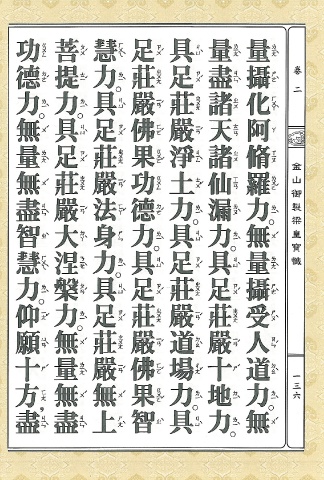 卷二
金山御製梁皇寶懺
一三六
量攝化阿脩羅力。無量攝受人道力。無
量盡諸天諸仙漏力。具足莊嚴十地力。
具足莊嚴淨土力。具足莊嚴道場力。具
足莊嚴佛果功德力。具足莊嚴佛果智
慧力。具足莊嚴法身力。具足莊嚴無上
菩提力。具足莊嚴大涅槃力。無量無盡
功德力。無量無盡智慧力。仰願十方盡